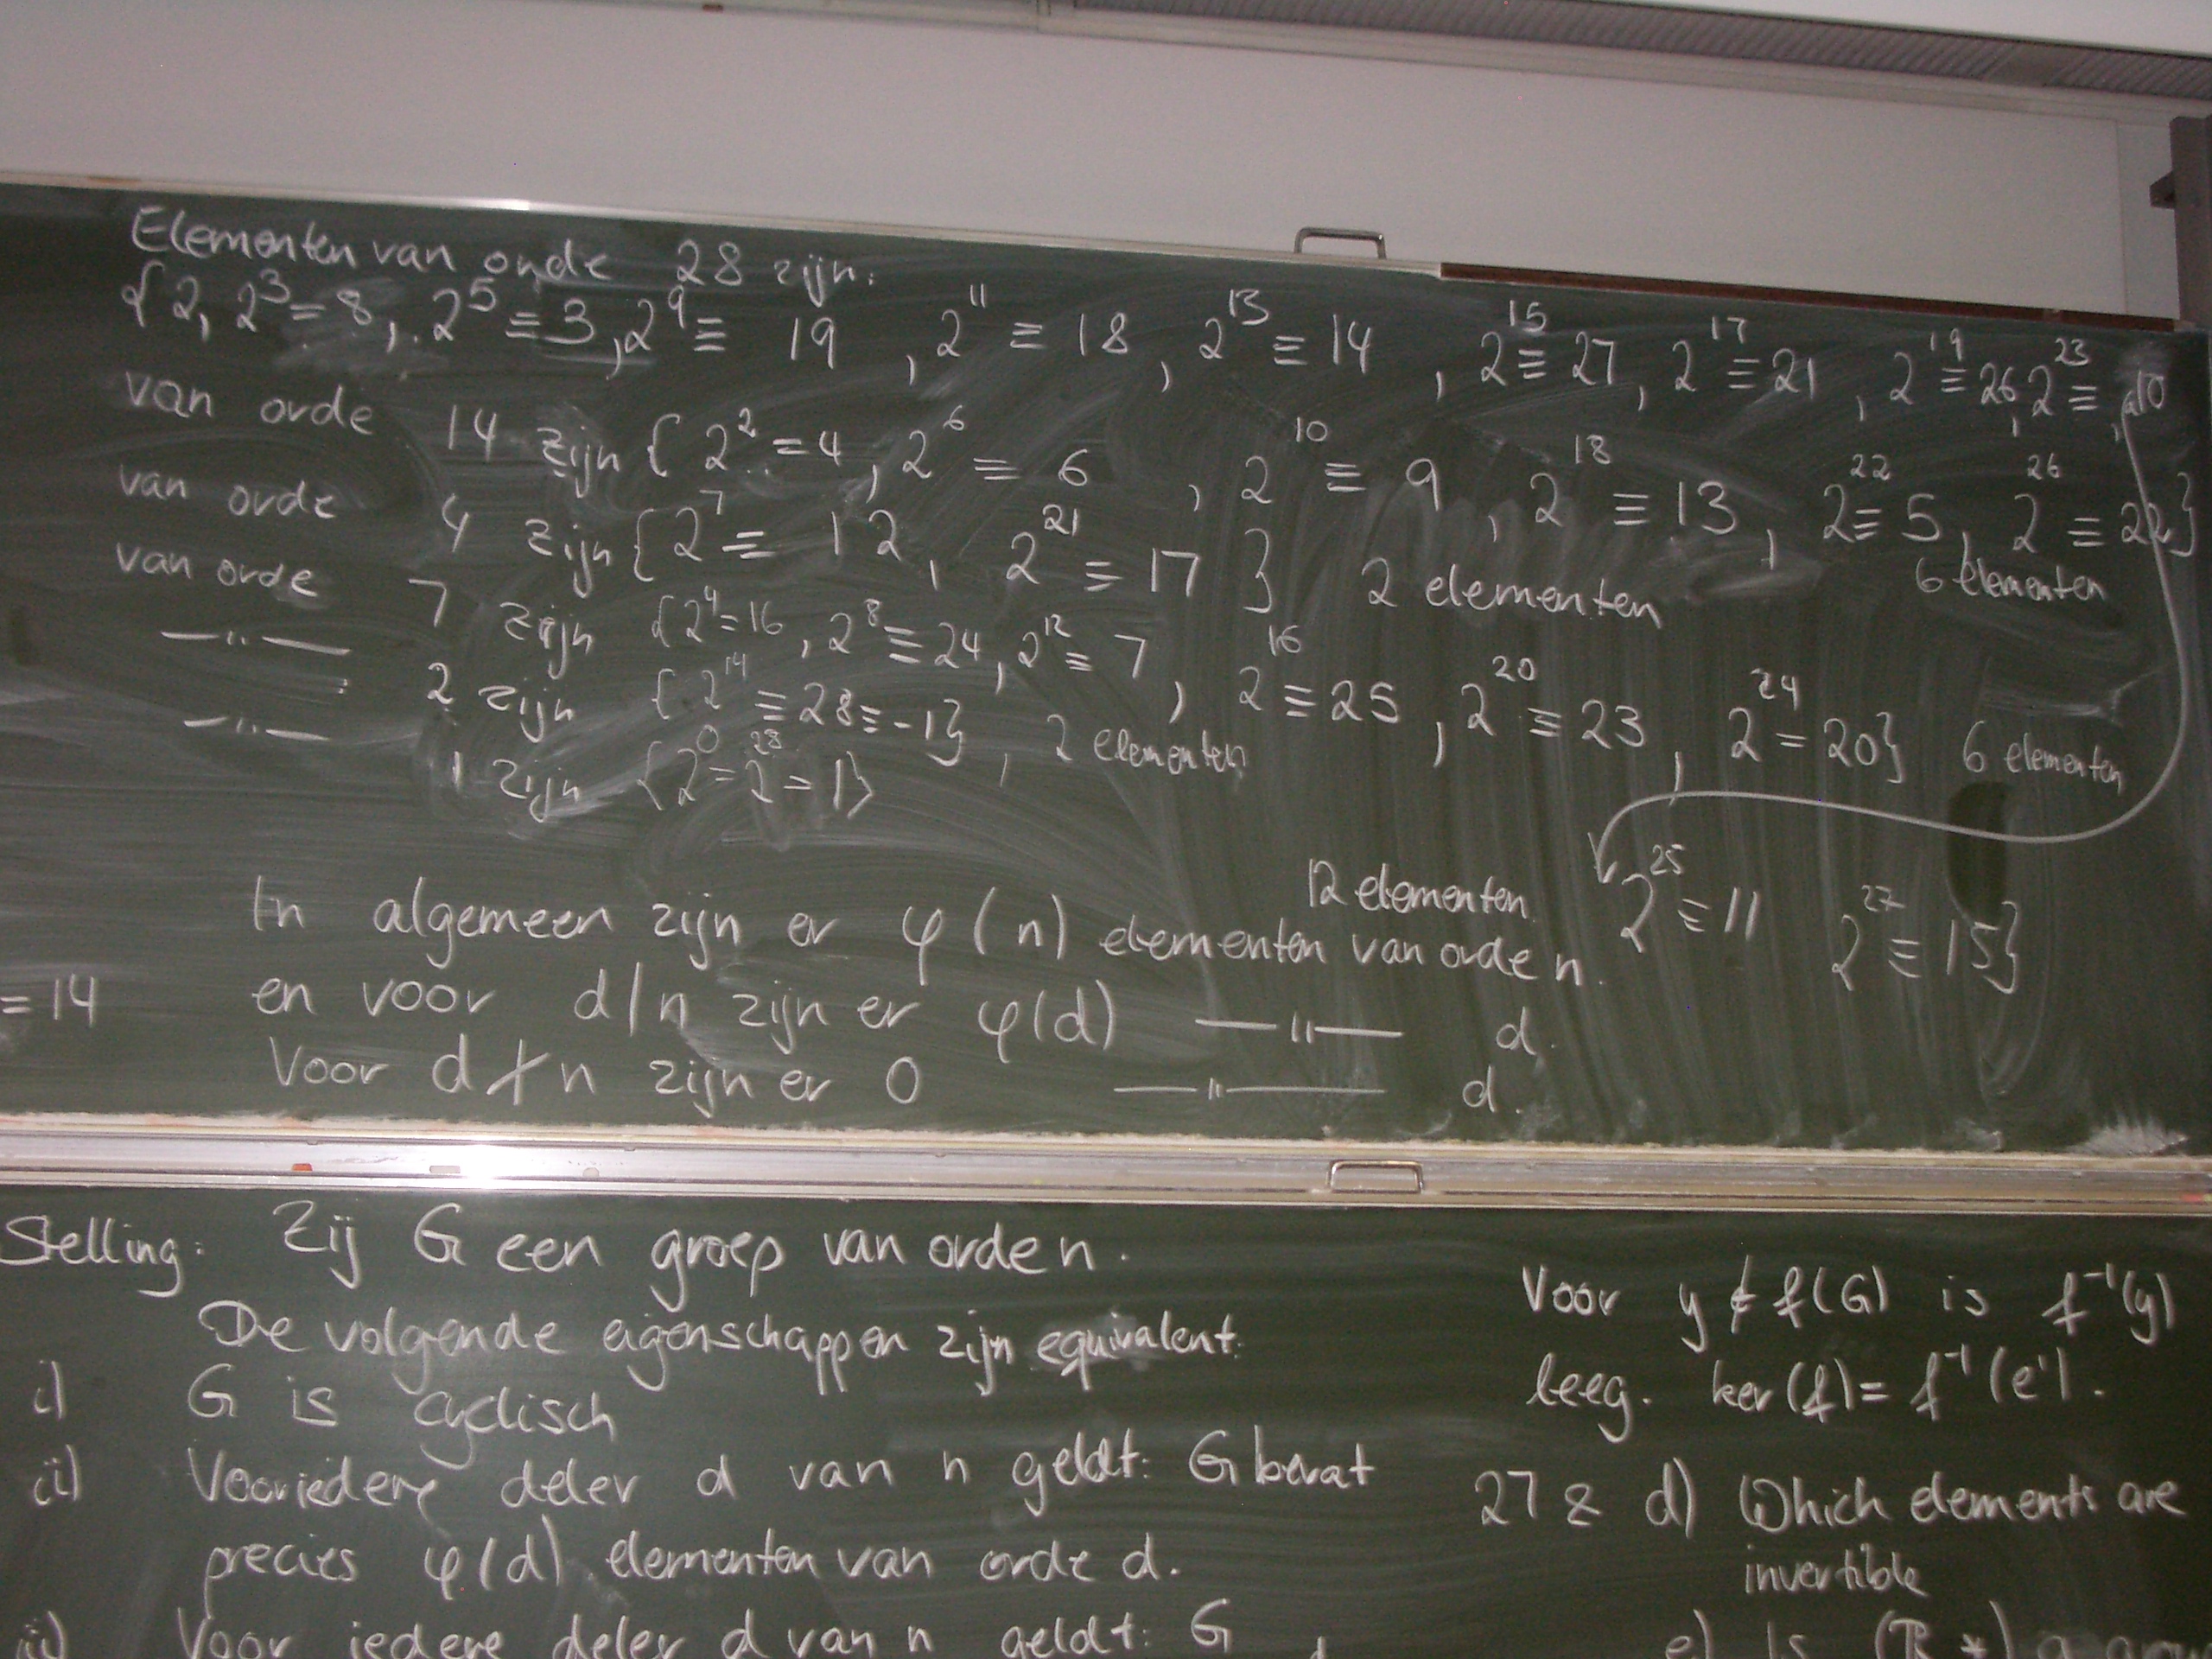 Elementen van orde 28 zijn:
{2, 2³=8, 2⁵≡3, 2⁹≡ 19, 2¹¹≡18, 2¹³≡14, 2¹⁵≡27, 2¹⁷≡21, 2¹⁹≡26, 2²³≡10,
van orde 14 zijn {2²=4, 2⁶≡6, 2¹⁰≡9, 2¹⁸≡13, 2²²≡5, 2²⁶≡22}
6 elementen
van orde 4 zijn {2⁷≡12, 2²¹≡17} 2 elementen
van orde 7 zijn {2⁴=16, 2⁸≡24, 2¹²≡7, 2¹⁶≡25, 2²⁰≡23, 2²⁴=20} 6 elementen
—"— 2 zijn {2¹⁴≡28≡-1}, 2 elementen
—"— 1 zijn {2⁰=2²⁸=1}
12 elementen 2²⁵≡11 2²⁷≡15}
In algemeen zijn er φ(n) elementen van orde n.
=14 en voor d|n zijn er φ(d) —"— d.
Voor d∤n zijn er 0 —"— d.
Stelling: Zij G een groep van orde n.
De volgende eigenschappen zijn equivalent:
i) G is cyclisch
ii) Voor iedere deler d van n geldt: G bevat
precies φ(d) elementen van orde d.
iii) Voor iedere deler d van n geldt: G
Voor y ∉ f(G) is f⁻¹(y)
leeg. ker(f)= f⁻¹(e').
27 & d) Which elements are
invertible
e) Is (R *) a